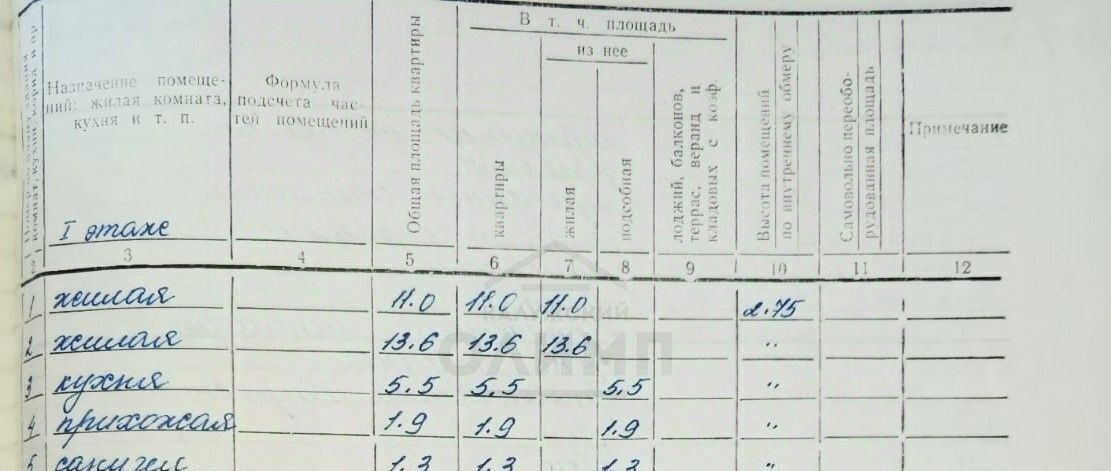 В т. ч. площадь
из нее
комнат, кухни, корид. и пр
Назначение помеще-
ний: жилая комната,
кухня и т. п.
Формула
подсчета час-
тей помещений
Общая площадь квартиры
квартиры
жилая
подсобная
лоджий, балконов,
террас, веранд и
кладовых с коэф.
Высота помещений
по внутреннему обмеру
Самовольно переобо-
рудованная площадь
Примечание
I этаже
3 4 5 6 7 8 9 10 11 12
1 жилая 11.0 11.0 11.0 2.75
2 жилая 13.6 13.6 13.6 "
3 кухня 5.5 5.5 5.5 "
4 прихожая 1.9 1.9 1.9 "
5 санузел 1.3 1.3 1.3 "
ОЛИМП